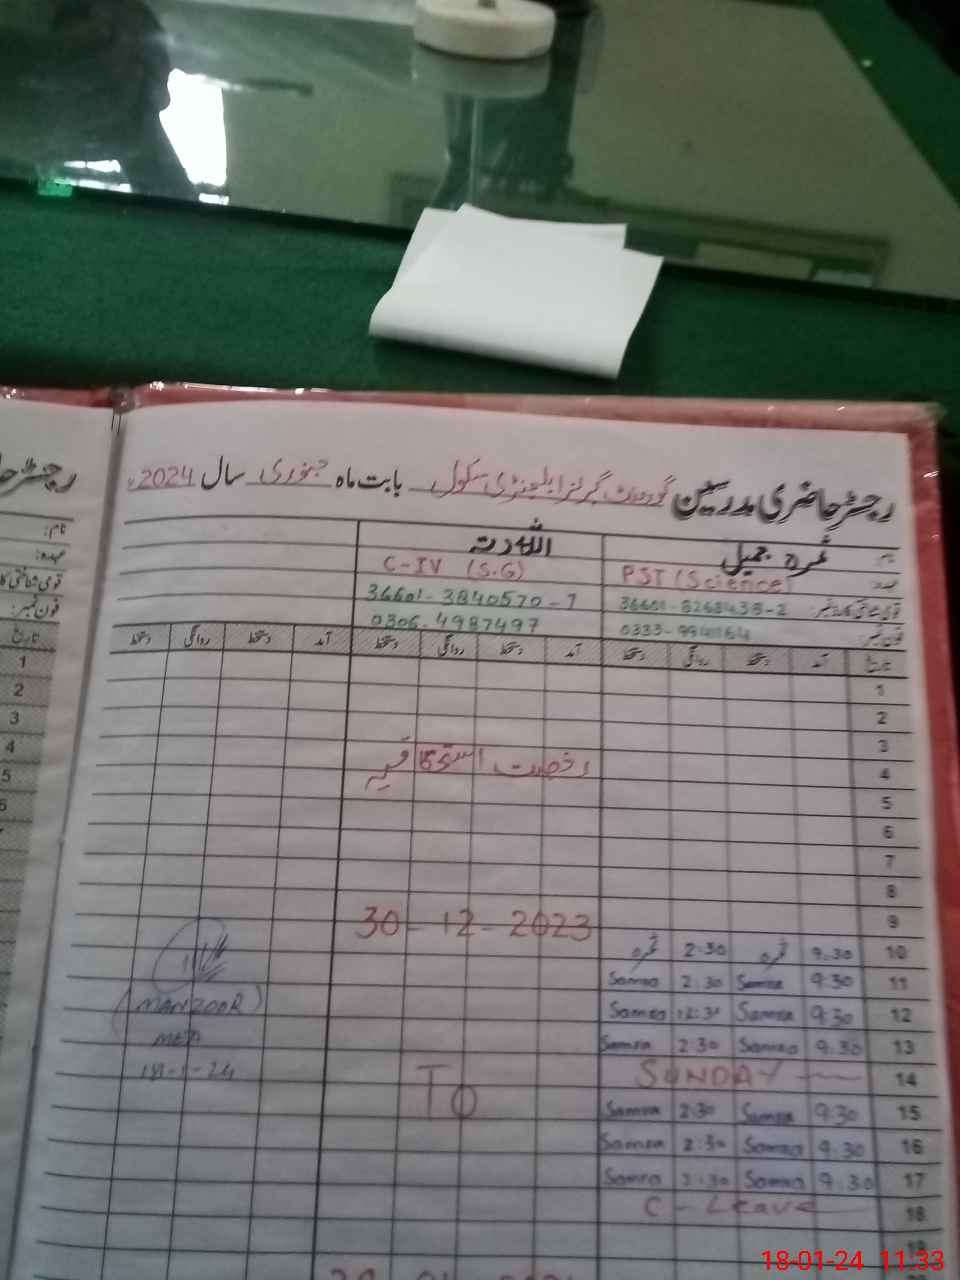 رجسٹر حاضری مدرسین گورنمنٹ گرلز ایلیمنٹری سکول بابت ماہ جنوری سال 2024ء
نام ثمرہ جمیل اللہ دتہ
عہدہ PST (Science) C-IV (S.G)
36601-8268438-2 36601-3840570-7
فون نمبر 0333-9940164 0306-4987497
تاریخ آمد دستخط روانگی دستخط آمد دستخط روانگی دستخط آمد دستخط روانگی دستخط
1
2
3
4 رخصت استحقاقیہ
5
6
7
8
9 30-12-2023
10 9:30 ثمرہ 2:30 ثمرہ
11 9:30 Samra 2:30 Samra
12 9:30 Samra 12:30 Samra
13 9:30 Samra 2:30 Samra
14 SUNDAY
15 9:30 Samra 2:30 Samra
16 9:30 Samra 2:30 Samra
17 9:30 Samra 2:30 Samra
18 C-Leave
19
TO
(MANZOOR)
MEA
18-1-24
رجسٹر حا
نام:
عہدہ:
قومی شناختی کا
فون نمبر:
تاریخ
1
2
3
4
5
6
18-01-24 11:33